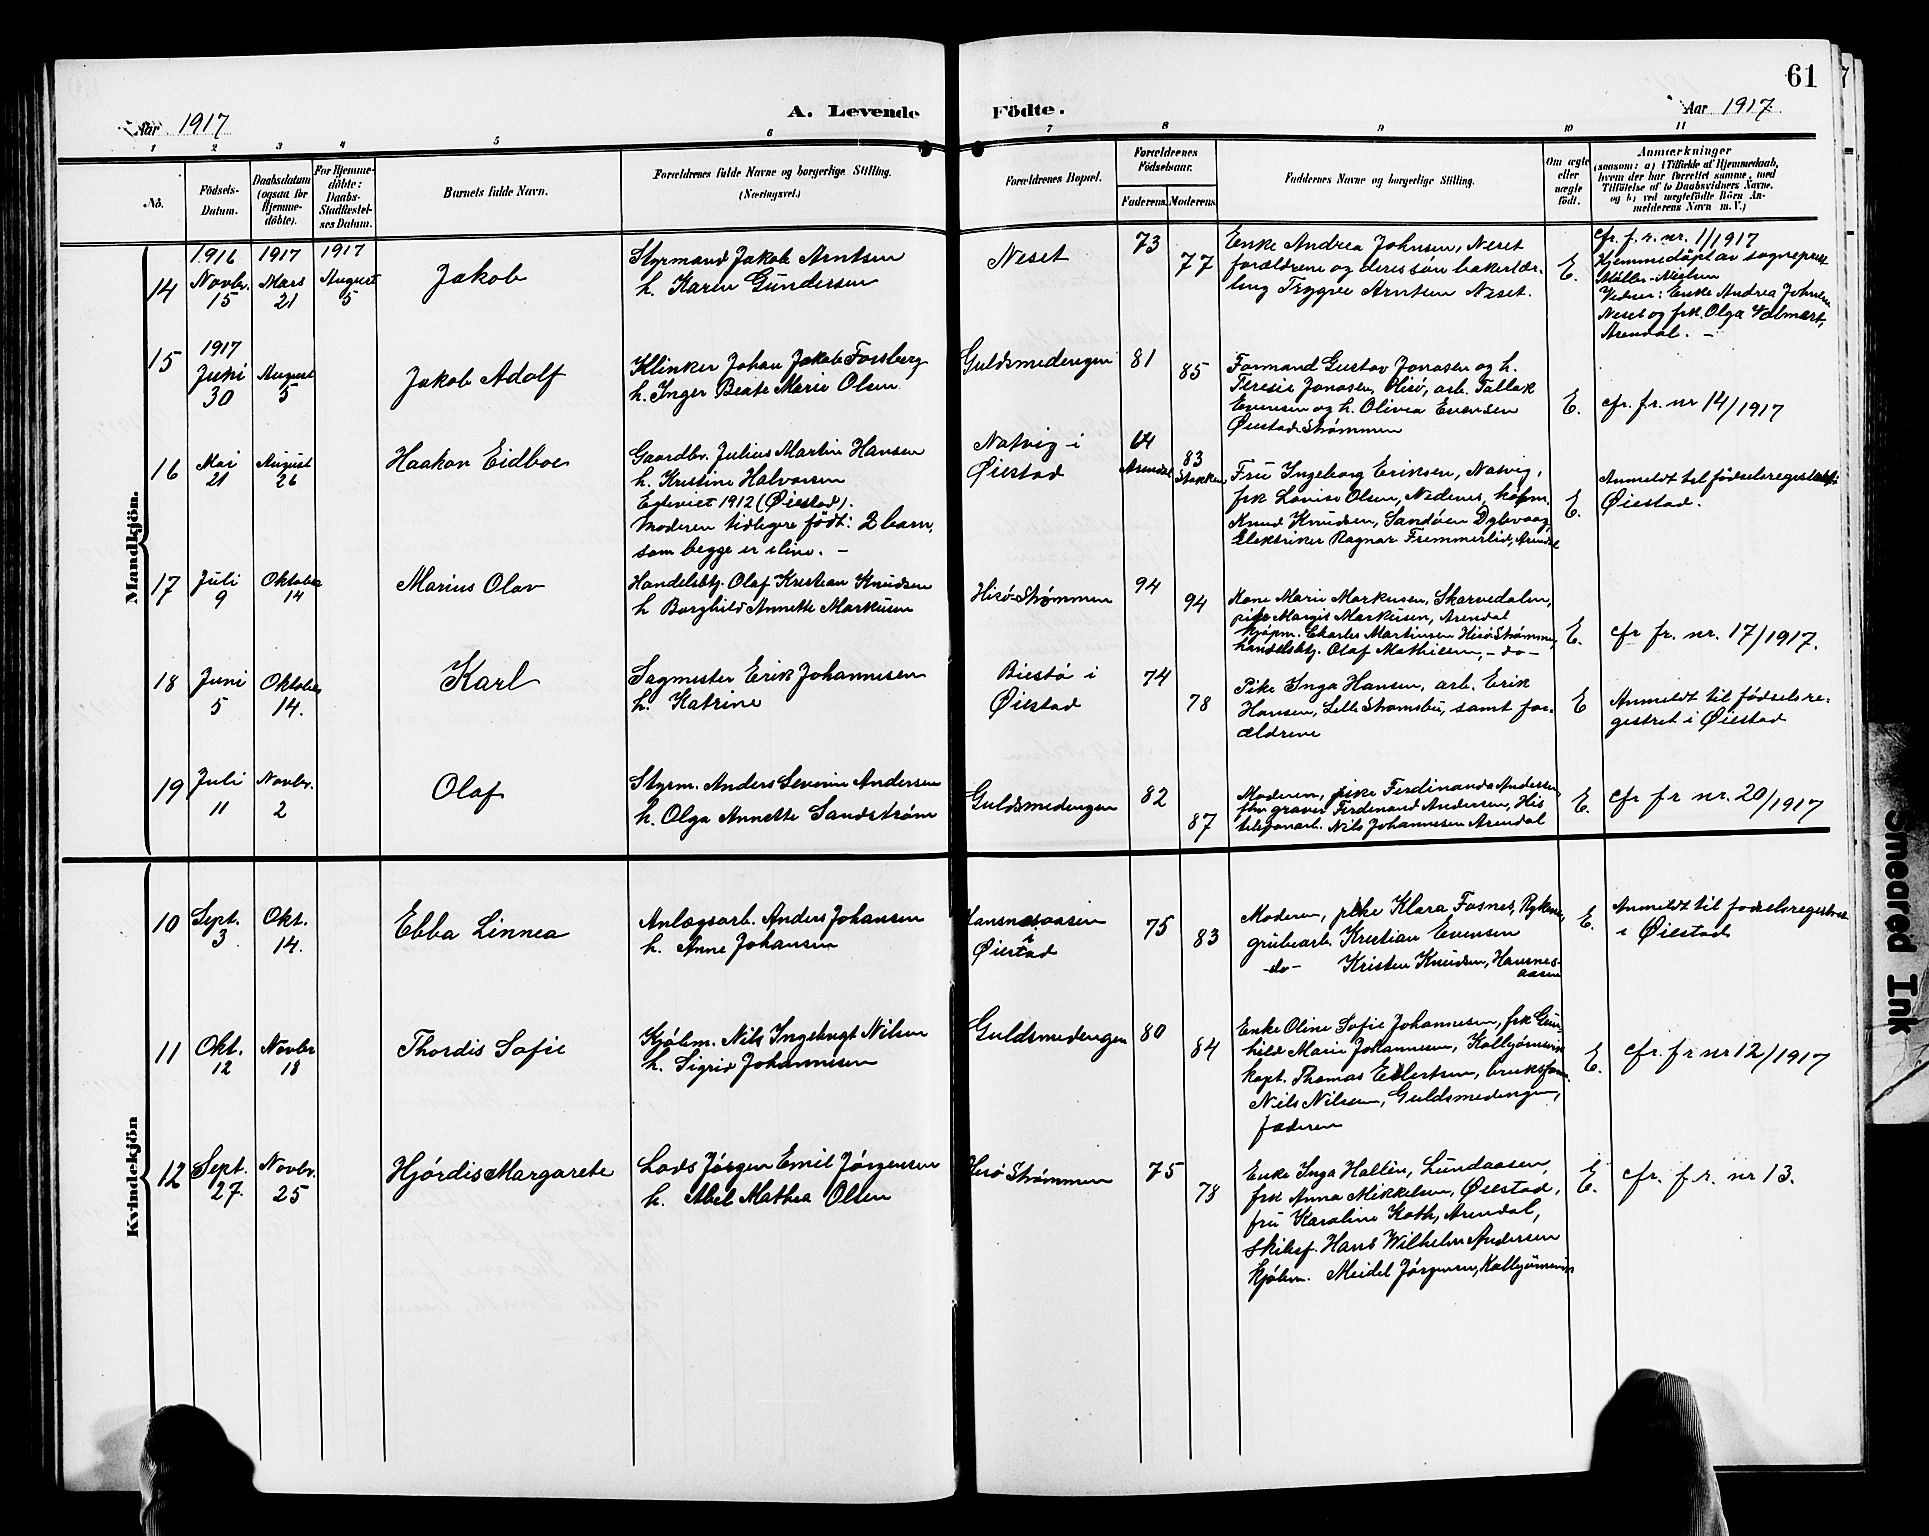 61
Aar 1917
A. Levende Födte.
Aar 1917
1 2 3 4 5 6 7 8 9 10 11
No.
Födsels-
Datum.
Daabsdatum
(ogsaa for
Hjemme-
döbte).
For Hjemme-
döbte:
Daabs-
Stadfæstel-
ses Datum.
Barnets fulde Navn.
Forældrenes fulde Navne og borgerlige Stilling.
(Næringsvei.)
Forældrenes Bopæl.
Forældrenes
Födselsaar.
Faderens.
Moderens.
Faddernes Navne og borgerlige Stilling.
Om ægte
eller
uægte
födt.
Anmærkninger
(saasom: a) i Tilfælde af Hjemmedaab,
hvem der har forrettet samme, med
Tilföielse af to Daabsvidners Navne,
og b) ved uægtefödte Börn An-
melderens Navn m. V.)
Mandkjön.
14
1916
Novbr.
15
1917
Mars
21
1917
August
5
Jakob
Styrmand Jakob Arntsen
h. Karen Gundersen
Neset
73
77
Enke Andrea Johnsen, Neset
forældrene og deres søn bakerlær-
ling Trygve Arntsen Neset.
E.
cfr. f. r. nr. 1/1917
Hjemmedøpt av sogneprest
Møller-Nielsen
Vidner: Enke Andrea Johnsen
Neset og frk. Olga Valmært,
Arendal. -
15
1917
Juni
30
August
5
Jakob Adolf
Klinker Johan Jakob Forsberg
h. Inger Beate Marie Olsen
Guldsmedengen
81
85
Formand Gustav Jonasen og h.
Teresie Jonasen, Hisø, arb. Tallak
Evensen og h. Olivia Evensen
Øiestad Strømmen
E.
cfr. f. r. nr 14/1917
16
Mai
21
August
26
Haakon Eidboe
Gaardbr. Julius Martin Hansen
h. Kristine Halvorsen
Egteviet 1912 (Øiestad).
Moderen tidligere født: 2 barn,
som begge er ilive. -
Natvig i
Øiestad
64
Arendal
83
Stokken
Fru Ingeborg Eriksen, Natvig,
frk Lovise Olsen, Nedenes, kofm.
Knud Knudsen, Sandøen Dybvaag,
Elektriker Ragnar Fremmerlid, Arendal
E.
Anmeldt til fødselsregistret i
Øiestad.
17
Juli
9
Oktober
14
Marius Olav
Handelsbtj. Olaf Kristian Knudsen
h Borghild Annette Markusen
Hisø Strømmen
94
94
Kone Marie Markusen, Skarvedalen,
pike Margit Markusen, Arendal
kjøpm. Charles Martinsen Hisø Strømmen,
handelsbtj. Olaf Mathisen, - do -
E.
cfr fr. nr. 17/1917.
18
Juni
5
Oktober
14.
Karl
Sagmester Erik Johannesen
h. Katrine
Biestø i
Øiestad
74
78
Pike Inga Hansen, arb. Erik
Hansen, Lille Strømsbu, samt for-
ældrene
E
Anmeldt til fødselsre-
gestret i Øiestad
19
Juli
11
Novbr.
2
Olaf
Styrm. Anders Severin Andersen
h. Olga Annette Sandstrøm
Guldsmedengen
82
87
Moderen, pike Ferdinanda Andersen,
fhv graver Ferdinand Andersen, His
telefonarb. Nils Johannesen Arendal
E.
cfr fr nr. 20/1917
Kvindekjön
10
Sept.
3
Okt.
14.
Ebba Linnea
Anlægsarb. Anders Johansen
h. Anne Johansen
Hansnesaasen
i
Øiestad
75
83
Moderen, pike Klara Fosnes, Rykene,
grubearb. Kristian Evensen
-do- Kristen Knudsen, Hansnes-
aasen
E.
Anmeldt til fodselsregestret
i Øiestad
11
Okt.
12
Novbr
18
Thordis Sofie
Kjølm. Nils Ingebrigt Nilsen
h. Sigrid Johannesen
Guldsmedengen
80
84
Enke Oline Sofie Johannesen, frk Gun-
hild Marie Johannesen, Kolbjørnsvik
kapt. Thomas Ellertsen, bruksform.
Nils Nilssen, Guldsmedengen,
faderen
E.
cfr. fr nr 12/1917
12
Sept.
27.
Novbr.
25
Hjørdis Margarete
Lods Jørgen Emil Jørgensen
h. Abel Mathea Olsen
Hisø Strømmen
75
78
Enke Inga Hallén, Lundaasen,
frk Anna Mikkelsen, Øiestad,
fru Karoline Koth, Arendal,
Skibsf. Hans Wilhelm Andersen
Kjølm. Meidel Jørgensen, Kolbjørnsvik
E.
cfr. f. r. nr 13.
Smeared Ink